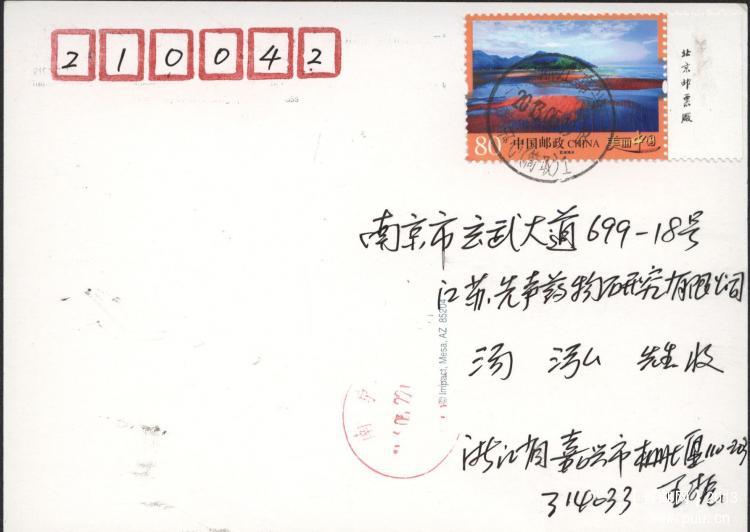 210042
北京邮票厂
2013.05
80
中国邮政 CHINA
美丽中国
南京市玄武大道699-18号
江苏先声药物研究有限公司
汤 先生收
© Impact, Mesa, AZ 85204
南京
浙江省嘉兴市
314033